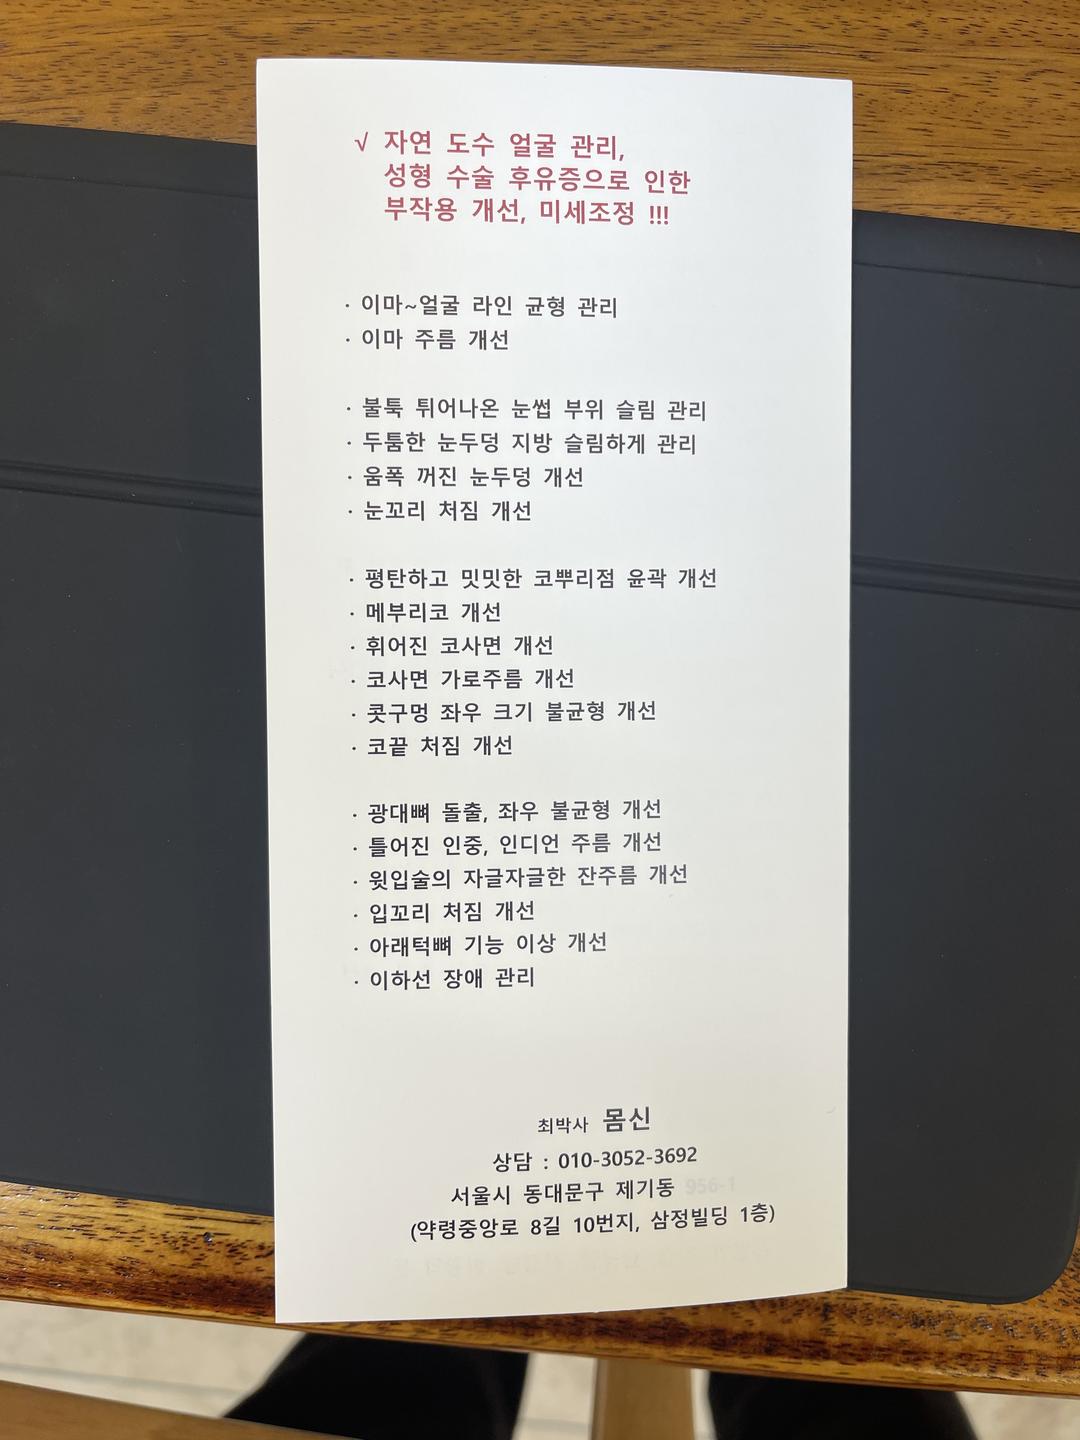 √ 자연 도수 얼굴 관리,
성형 수술 후유증으로 인한
부작용 개선, 미세조정 !!!
· 이마~얼굴 라인 균형 관리
· 이마 주름 개선
· 불툭 튀어나온 눈썹 부위 슬림 관리
· 두툼한 눈두덩 지방 슬림하게 관리
· 움폭 꺼진 눈두덩 개선
· 눈꼬리 처짐 개선
· 평탄하고 밋밋한 코뿌리점 윤곽 개선
· 메부리코 개선
· 휘어진 코사면 개선
· 코사면 가로주름 개선
· 콧구멍 좌우 크기 불균형 개선
· 코끝 처짐 개선
· 광대뼈 돌출, 좌우 불균형 개선
· 틀어진 인중, 인디언 주름 개선
· 윗입술의 자글자글한 잔주름 개선
· 입꼬리 처짐 개선
· 아래턱뼈 기능 이상 개선
· 이하선 장애 관리
최박사 몸신
상담 : 010-3052-3692
서울시 동대문구 제기동 956-1
(약령중앙로 8길 10번지, 삼정빌딩 1층)